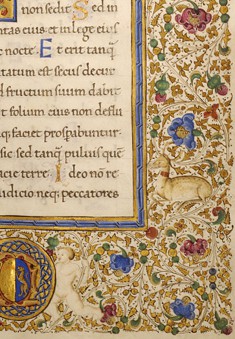 non sedit Sed in
ntas eius et in lege eius
c nocte. Et erit tanq̃
ntatum est secus decur
d fructum suum dabit
t folium eius non deflu
nq; faciet prospabuntur
sic sed tanq̃ puluis quẽ
acie terre Ideo nõ re
udicio neq; peccatores